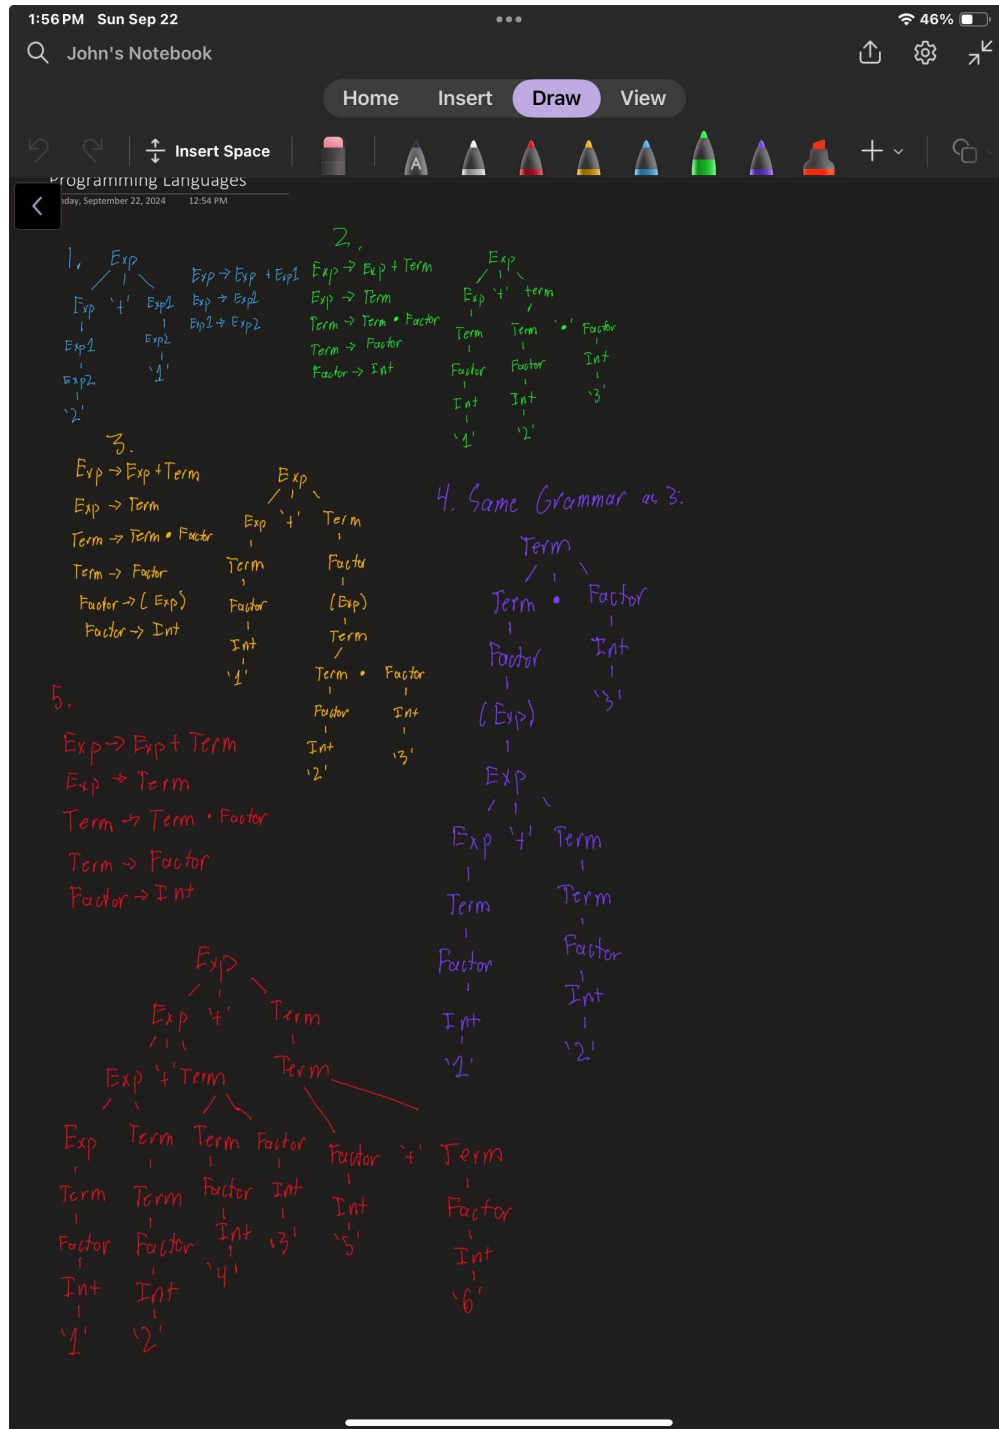 1:56 PM Sun Sep 22
46%
John's Notebook
Home Insert Draw View
Insert Space
A
Programming Languages
day, September 22, 2024 12:54 PM
1.
Exp
Exp '+' Exp1
Exp1 Exp2
Exp2 '1'
'2'
Exp → Exp + Exp1
Exp → Exp1
Exp1 → Exp2
2.
Exp → Exp + Term
Exp → Term
Term → Term • Factor
Term → Factor
Factor → Int
Exp
Exp '+' term
Term Term '•' Factor
Factor Factor Int
Int Int '3'
'1' '2'
3.
Exp → Exp + Term
Exp → Term
Term → Term • Factor
Term → Factor
Factor → (Exp)
Factor → Int
Exp
Exp '+' Term
Term Factor
Factor (Exp)
Int Term
'1' Term • Factor
Factor Int
Int '3'
'2'
4. Same Grammar as 3:
Term
Term • Factor
Factor Int
(Exp) '3'
Exp
Exp '+' Term
Term Term
Factor Factor
Int Int
'1' '2'
5.
Exp → Exp + Term
Exp → Term
Term → Term • Factor
Term → Factor
Factor → Int
Exp
Exp '+' Term
Exp '+' Term Term
Exp Term Term Factor Factor '+' Term
Term Term Factor Int Int Factor
Factor Factor Int '3' '5' Int
Int Int '4' '6'
'1' '2'